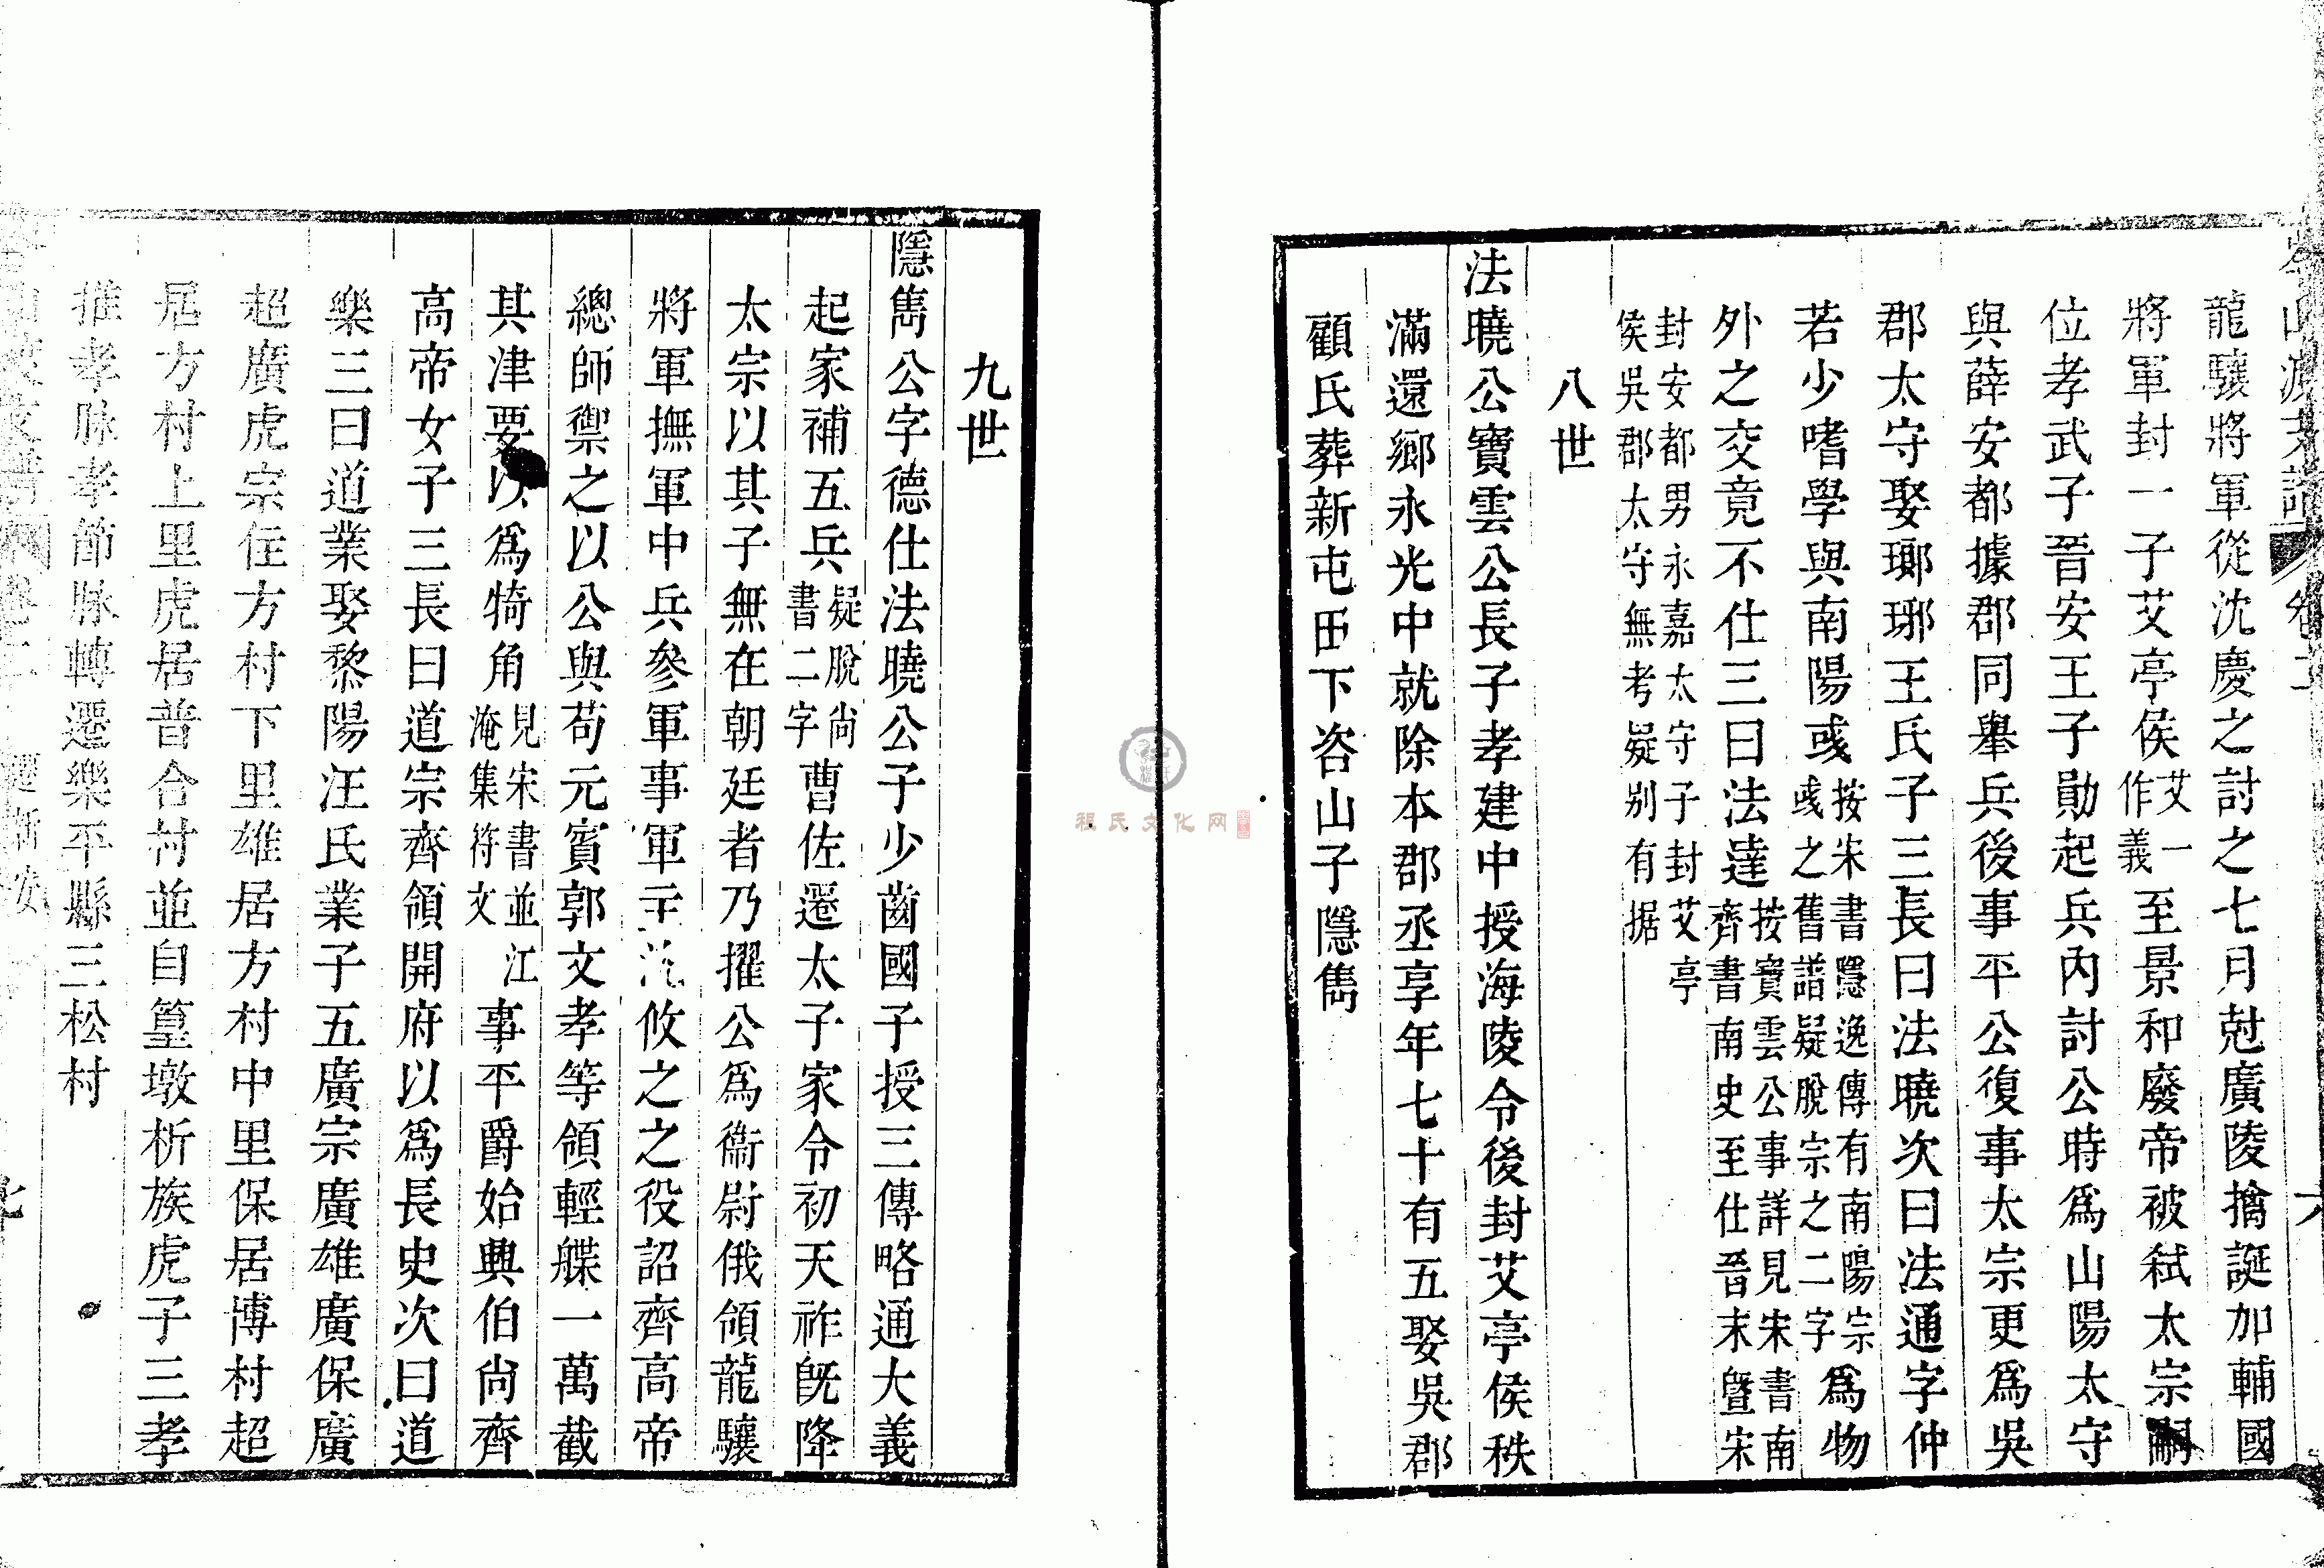 龍驤將軍從沈慶之討之七月尅廣陵擒誕加輔國
將軍封一子艾亭侯艾一作義至景和廢帝被弑太宗嗣
位孝武子晉安王子勛起兵內討公時爲山陽太守
與薛安都據郡同舉兵後事平公復事太宗更爲吳
郡太守娶瑯琊王氏子三長曰法曉次曰法通字仲
若少嗜學與南陽彧按宋書隱逸傳有南陽宗彧之舊譜疑脫宗之二字爲物
外之交竟不仕三曰法達按寶雲公事詳見宋書南齊書南史至仕晉末曁宋
封安都男永嘉太守子封艾亭侯吳郡太守無考疑別有据
八世
法曉公寶雲公長子孝建中授海陵令後封艾亭侯秩
滿還鄉永光中就除本郡丞享年七十有五娶吳郡
顧氏葬新屯田下咨山子隱雋
九世
隱雋公字德仕法曉公子少齒國子授三傳略通大義
起家補五兵疑脫尙書二字曹佐遷太子家令初天祚旣降
太宗以其子無在朝廷者乃擢公爲衞尉俄領龍驤
將軍撫軍中兵參軍事軍攸之之役詔齊高帝
總師禦之以公與苟元賓郭文孝等領輕艓一萬截
其津要以爲犄角見宋書並江淹集符文事平爵始興伯尙齊
高帝女子三長曰道宗齊領開府以爲長史次曰道
樂三曰道業娶黎陽汪氏業子五廣宗廣雄廣保廣
超廣虎宗住方村下里雄居方村中里保居博村超
居方村上里虎居普合村並自篁墩析族虎子三孝
推孝脉孝節脉轉遷樂平縣三松村
遷新安
程氏文化网